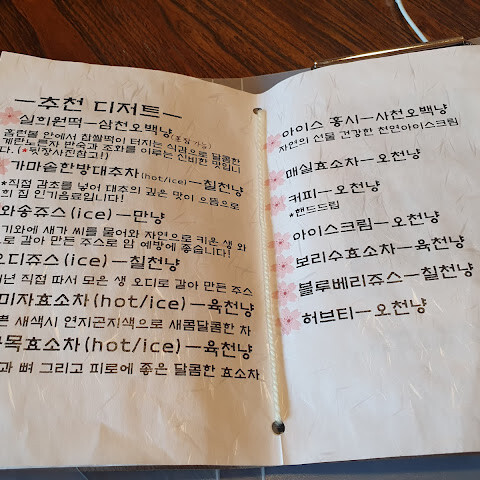 —추천 디저트—
실희원떡—삼천오백냥(포장가능)
홈런볼 안에서 찹쌀떡이 터지는 식감으로 달콤한
계란노른자 반숙과 조화를 이루는 신비한 맛입니
다.(*뒷장사진참고!)
가마솥한방대추차(hot/ice)—칠천냥
*직접 감초를 넣어 대추의 깊은 맛이 으뜸으로
희 집 인기음료입니다!
와송쥬스(ice)—만냥
기와에 새가 씨를 물어와 자연으로 키운 생 와
로 갈아 만든 주스로 암 예방에 좋습니다!
오디쥬스(ice)—칠천냥
년 직접 따서 모은 생 오디로 갈아 만든 주스
미자효소차(hot/ice)—육천냥
쁜 새색시 연지곤지색으로 새콤달콤한 차
목효소차(hot/ice)—육천냥
과 뼈 그리고 피로에 좋은 달콤한 효소차
아이스 홍시—사천오백냥
자연의 선물 건강한 천연아이스크림
매실효소차—오천냥
커피—오천냥
*핸드드립
아이스크림—오천냥
보리수효소차—육천냥
블루베리쥬스—칠천냥
허브티—오천냥